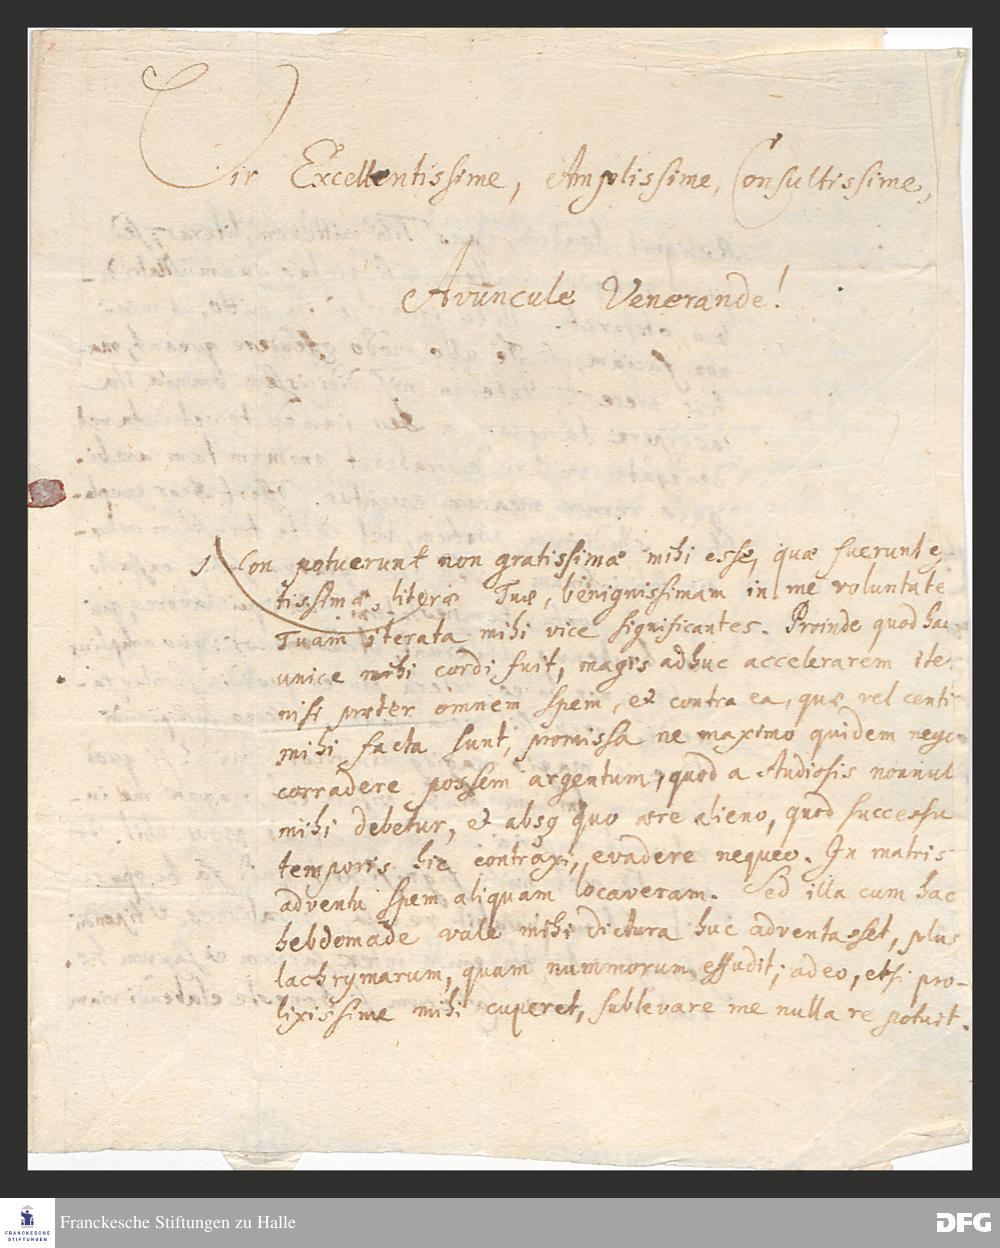 Vir Excellentissime, Amplissime, Consultissime,
Avuncule Venerande!
Non potuerunt non gratissimæ mihi esse, quæ fuerunt
tissimæ, literæ Tuæ, benignissimam in me voluntate
Tuam iterata mihi vice significantes. Proinde quod hac
unice mihi cordi fuit, magis adhuc accelerarem iter
nisi præter omnem spem, et contra ea, quæ vel centi
mihi facta sunt, promissa ne maximo quidem nego
corradere possem argentum, quod a studiosis nonnul
mihi debetur, et absq quo ære alieno, quod successu
temporis hic contraxi, evadere nequeo. In matris
adventu spem aliquam locaveram. Sed illa cum hac
hebdomade vale mihi dictura huc adventasset, plus
lachrymarum, quam nummorum effudit; adeo, etsi pro-
lixissime mihi cuperet, sublevare me nulla re potuit.
Franckesche Stiftungen zu Halle
FRANCKESCHE
STIFTUNGEN
DFG